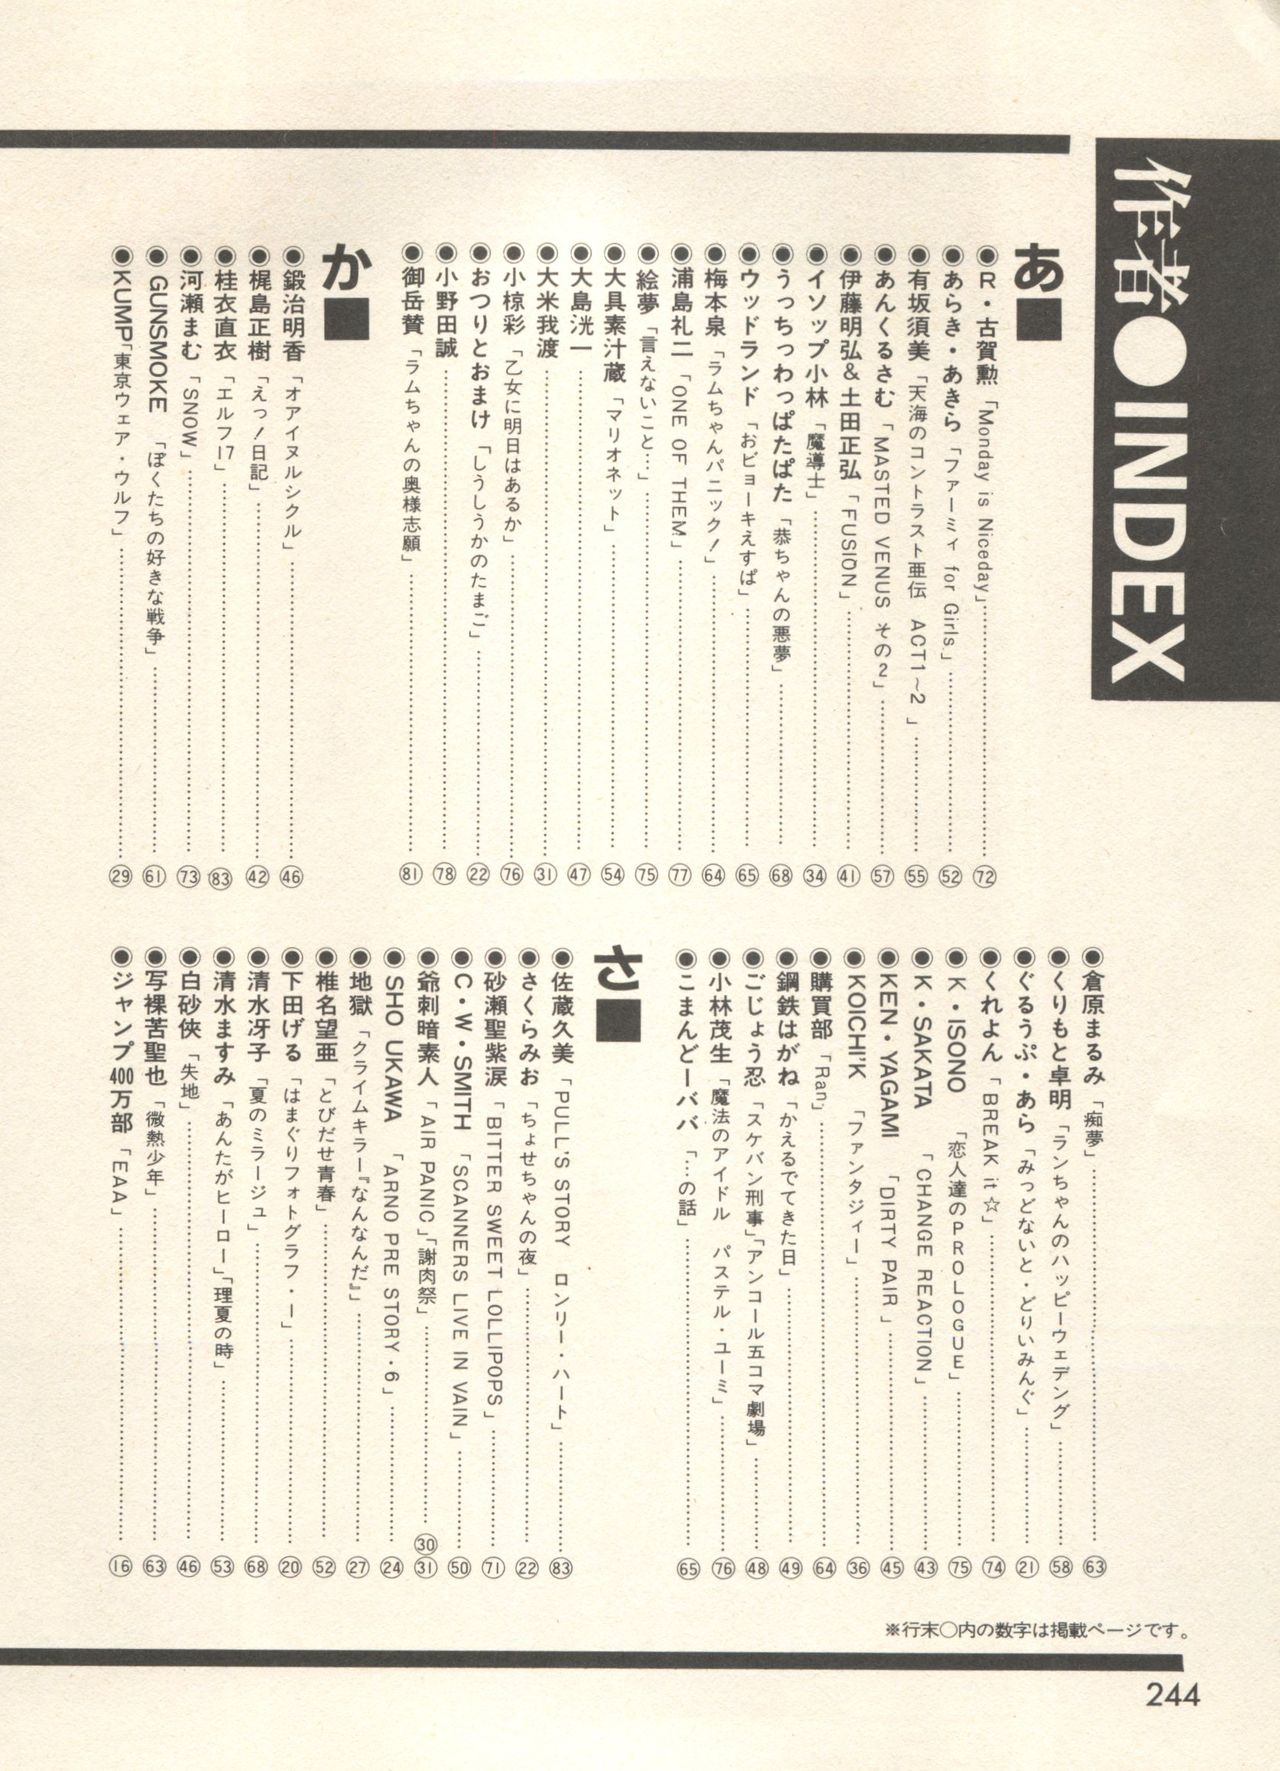 作者●INDEX
あ■
◉R・古賀勲「Monday is Niceday」……㊆72
◉あらき・あきら「ファーミィ for Girls」……52
◉有坂須美「天海のコントラスト亜伝 ACT1~2」……55
◉あんくるさむ「MASTED VENUS その2」……57
◉伊藤明弘&土田正弘「FUSION」……41
◉イソップ小林「魔導士」……34
◉うっちっわっぱたぱた「恭ちゃんの悪夢」……68
◉ウッドランド「おビョーキえすぱ」……65
◉梅本泉「ラムちゃんパニック!」……64
◉浦島礼二「ONE OF THEM」……77
◉絵夢「言えないこと…」……75
◉大具素汁蔵「マリオネット」……54
◉大島洸一……47
◉大米我渡……31
◉小椋彩「乙女に明日はあるか」……76
◉おつりとおまけ「しうしうかのたまご」……22
◉小野田誠……78
◉御岳賛「ラムちゃんの奥様志願」……81
か■
◉鍛治明香「オアイヌルシクル」……46
◉梶島正樹「えっ!日記」……42
◉桂衣直衣「エルフ17」……83
◉河瀬まむ「SNOW」……73
◉GUNSMOKE「ぼくたちの好きな戦争」……61
◉KUMP「東京ウェア・ウルフ」……29
◉倉原まるみ「痴夢」……63
◉くりもと卓明「ランちゃんのハッピーウェデング」……58
◉ぐるうぷ・あら「みっどないと・どりいみんぐ」……21
◉くれよん「BREAK it☆」……74
◉K・ISONO「恋人達のPROLOGUE」……75
◉K・SAKATA「CHANGE REACTION」……43
◉KEN・YAGAMI「DIRTY PAIR」……45
◉KOICHI'K「ファンタジィー」……36
◉購買部「Ran」……64
◉鋼鉄はがね「かえるでてきた日」……49
◉ごじょう忍「スケバン刑事」「アンコール五コマ劇場」……48
◉小林茂生「魔法のアイドル パステル・ユーミ」……76
◉こまんどーババ「…の話」……65
さ■
◉佐蔵久美「PULL'S STORY ロンリー・ハート」……83
◉さくらみお「ちょせちゃんの夜」……22
◉砂瀬聖紫涙「BITTER SWEET LOLLIPOPS」……71
◉C・W・SMITH「SCANNERS LIVE IN VAIN」……50
◉爺刺暗素人「AIR PANIC」「謝肉祭」……30 31
◉SHO UKAWA「ARNO PRE STORY・6」……24
◉地獄「クライムキラー『なんなんだ』」……27
◉椎名望亜「とびだせ青春」……52
◉下田げる「はまぐりフォトグラフ・I」……20
◉清水冴子「夏のミラージュ」……68
◉清水ますみ「あんたがヒーロー」「理夏の時」……53
◉白砂俠「失地」……46
◉写裸苦聖也「微熱少年」……63
◉ジャンプ400万部「EAA」……16
※行末○内の数字は掲載ページです。
244